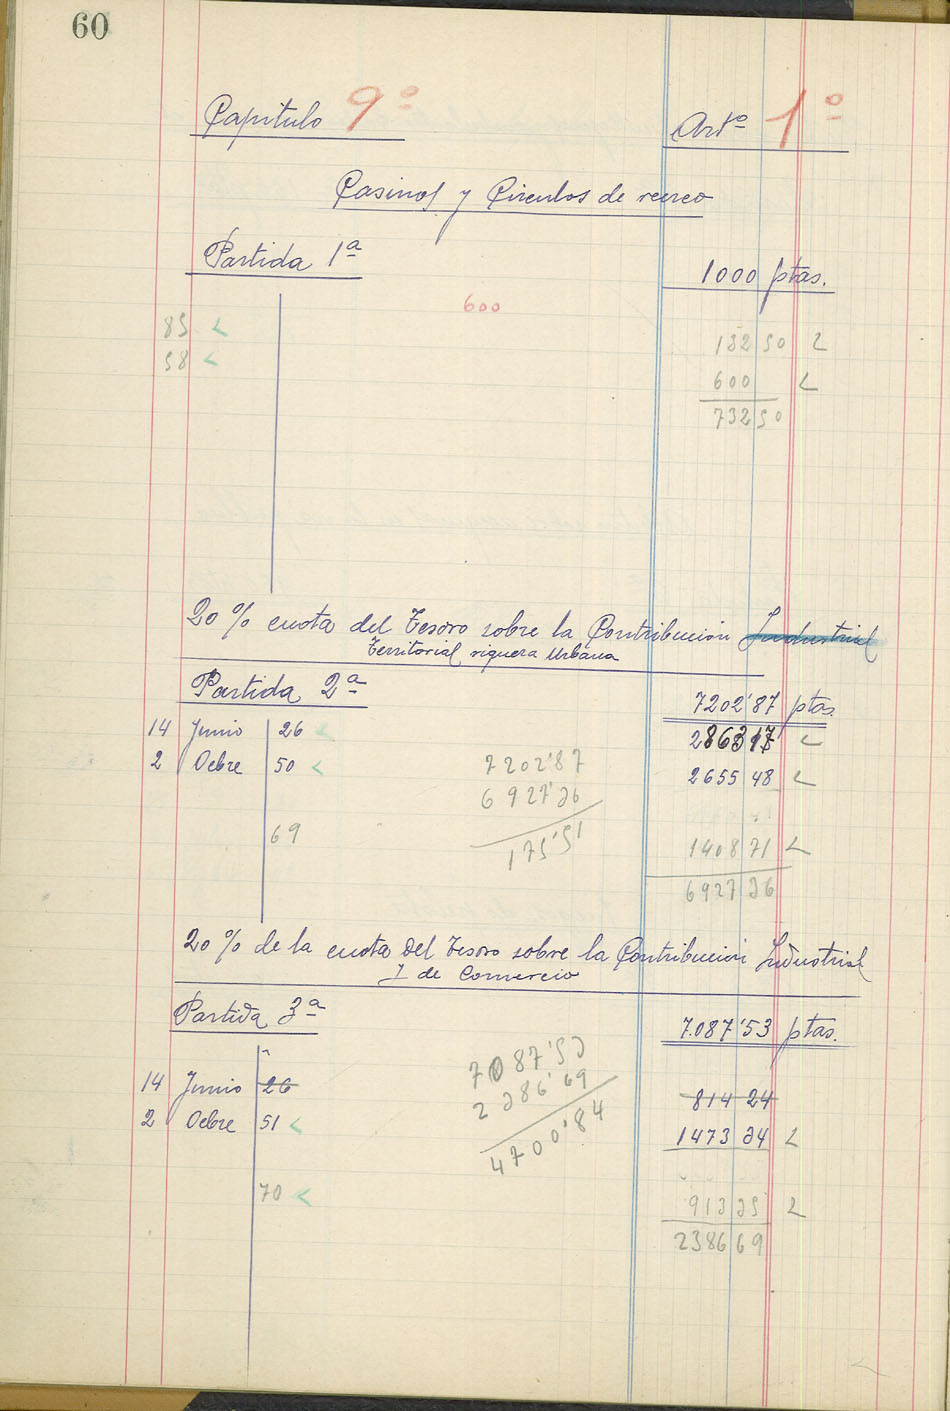 60
Capitulo 9º Artº 1º
Casinos y Circulos de recreo
Partida 1ª
1000 ptas.
600
85
132 50
58
600
732 50
20 % cuota del Tesoro sobre la Contribución Industrial
Territorial riqueza Urbana
Partida 2ª
7202'87 ptas.
14 Junio 26 2863 17
2 Ocbre 50 7202'87 2655 48
6927'36
69 175'51 1408 71
6927 36
20 % de la cuota del Tesoro sobre la Contribución Industrial
Y de Comercio
Partida 3ª
7.087'53 ptas.
7087'53
14 Junio 26 2386'69 814 24
2 Ocbre 51 4700'84 1473 34
70 913 35
2386 69